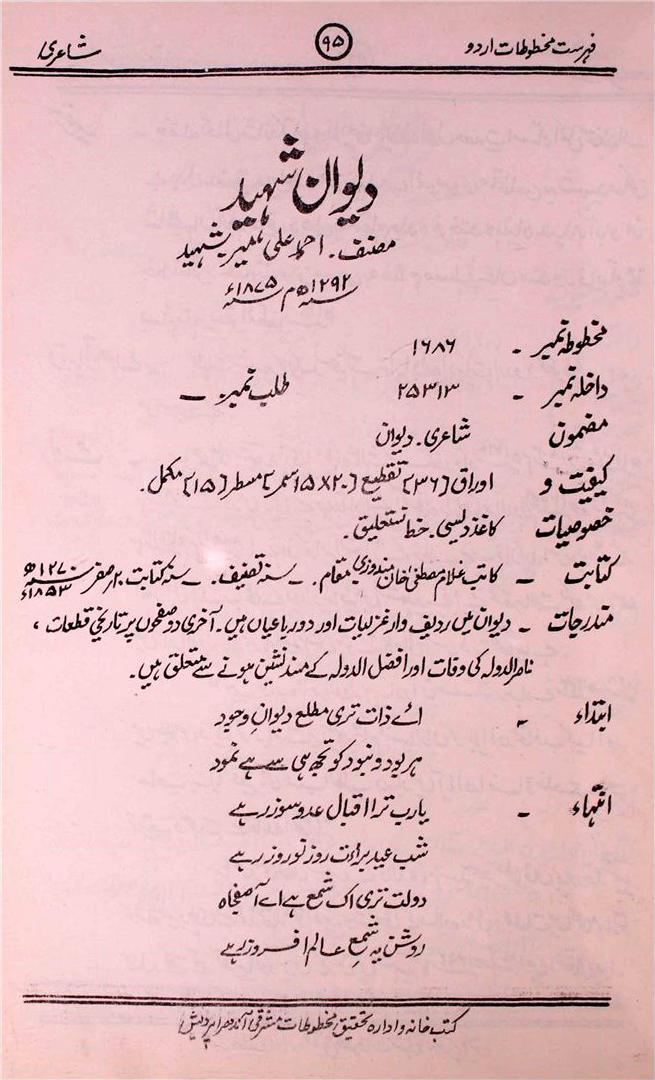 فہرست مخطوطات اردو ۹۵ شاعری
دیوان شہید
مصنف ۔ احمد علی میر شہید
سنہ ۱۲۹۲ھ م سنہ ۱۸۷۵ء
مخطوطہ نمبر ۔ ۱۶۸۶
داخلہ نمبر ۔ ۲۵۳۱۳ طلب نمبر ۔ ـ
مضمون شاعری ۔ دیوان
کیفیت و اوراق (۳۶) تقطیع (۲۰x۱۵) سمر مسطر (۱۵) مکمل ۔
خصوصیات کاغذ دیسی ۔ خط نستعلیق ۔
کتابت ۔ کاتب غلام مصطفیٰ خان مندوزی مقام ۔ ـ سنہ تصنیف ۔ ـ سنہ کتابت ۲۰ صفر سنہ ۱۲۷۰ھ ۱۸۵۳ء
مندرجات ۔ دیوان میں ردیف وار غزلیات اور دو رباعیاں ہیں ۔ آخری دو صفحوں پر تاریخی قطعات ،
ناصر الدولہ کی وفات اور افضل الدولہ کے مسند نشین ہونے سے متعلق ہیں ۔
ابتداء ۔ اے ذات تری مطلع دیوانِ وجود
ہر بود و نبود کو تجھ ہی سے ہے نمود
انتہاء ۔ یارب ترا اقبال عدو سوز رہے
شب عید برات روز نوروز رہے
دولت تری اک شمع ہے اے آصفجاہ
روشن یہ شمعِ عالم افروز رہے
کتب خانہ و ادارہ تحقیق مخطوطات مشرقی آندھرا پردیش